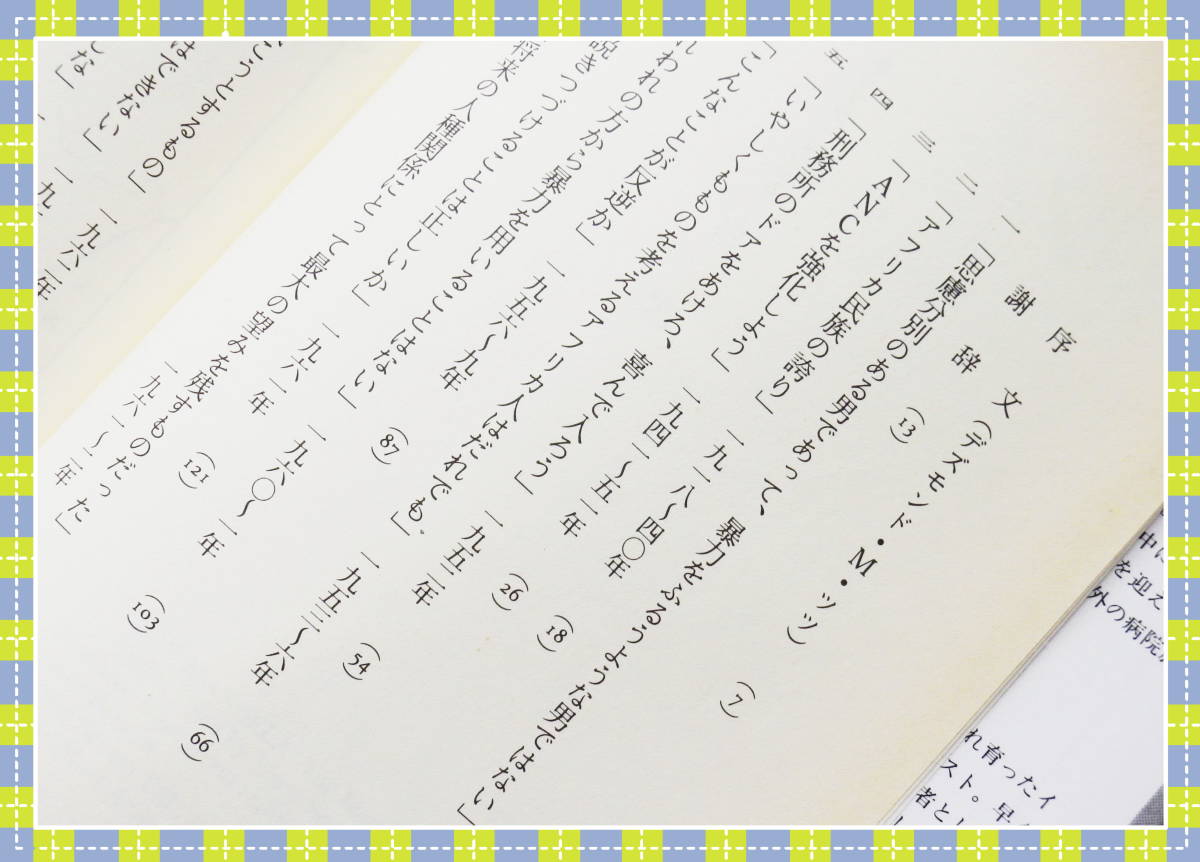 序文（デズモンド・M・ツツ） (7)
謝辞 (13)
一 「思慮分別のある男であって、暴力をふるうような男ではない」
二 「アフリカ民族の誇り」 一九一八〜四〇年 (18)
三 「ANCを強化しよう」 一九四一〜五一年 (26)
四 「刑務所のドアをあけろ、喜んで入ろう」 一九五二年 (54)
五 「いやしくもものを考えるアフリカ人はだれでも」 一九五三〜六年 (66)
「こんなことが反逆か」 一九五六〜九年 (87)
れわれの方から暴力を用いることはない」 一九六〇〜一年 (103)
説きつづけることは正しいか」 一九六一年 (121)
将来の人種関係にとって最大の望みを残すものだった」 一九六一〜二年
こうとするもの」 一九六二年
はできない」 一九
な」 一
中に
を迎え
外の病院
れ育ったイ
スト。早
者とし